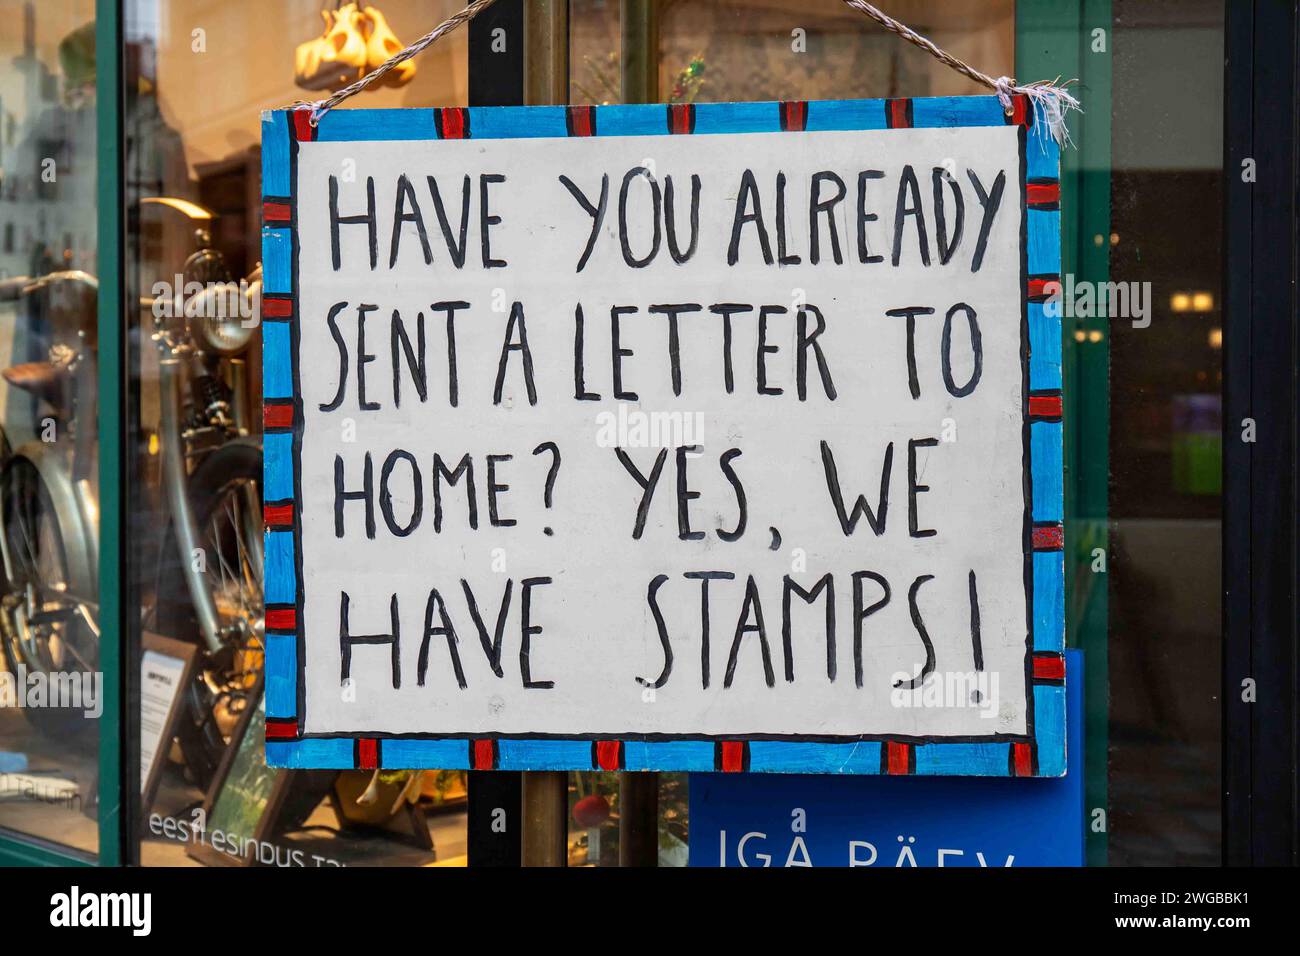 HAVE YOU ALREADY
SENT A LETTER TO
HOME? YES, WE
HAVE STAMPS!
TALLINN
eesti esindus
IGA PÄEV
alamy
Image ID: 2WGBBK1
www.alamy.com